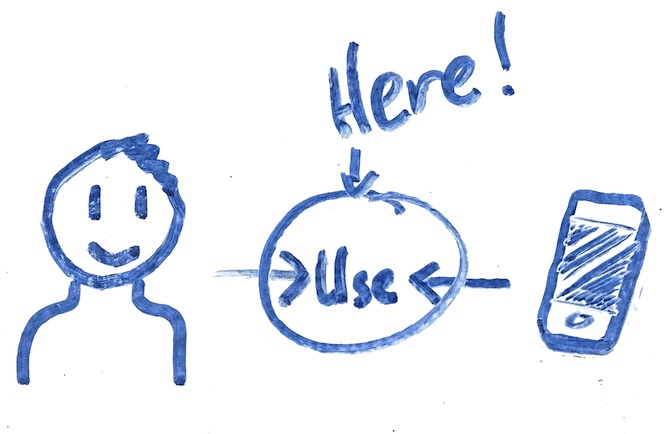 Here!
Use